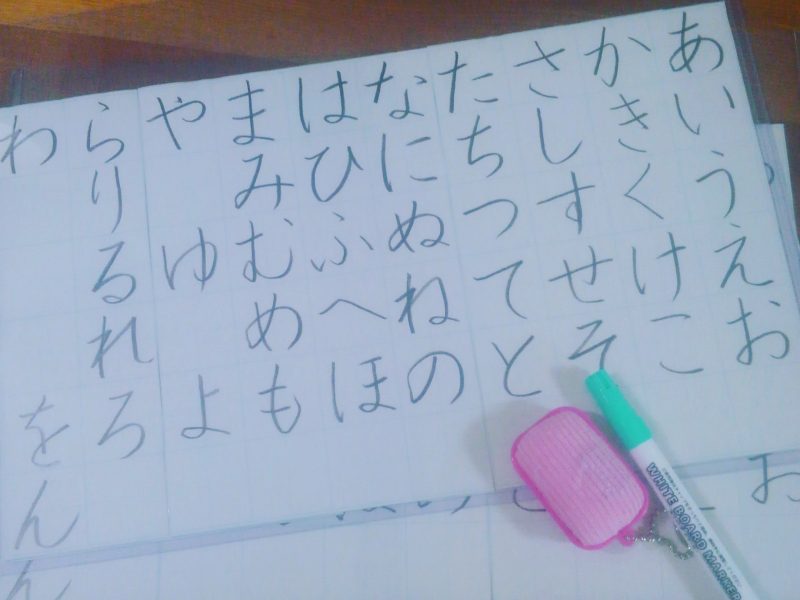 あいうえお
かきくけこ
さしすせそ
たちつてと
なにぬねの
はひふへほ
まみむめも
やゆよ
らりるれろ
わをん
ん
お
WHITE BOARD MARKER